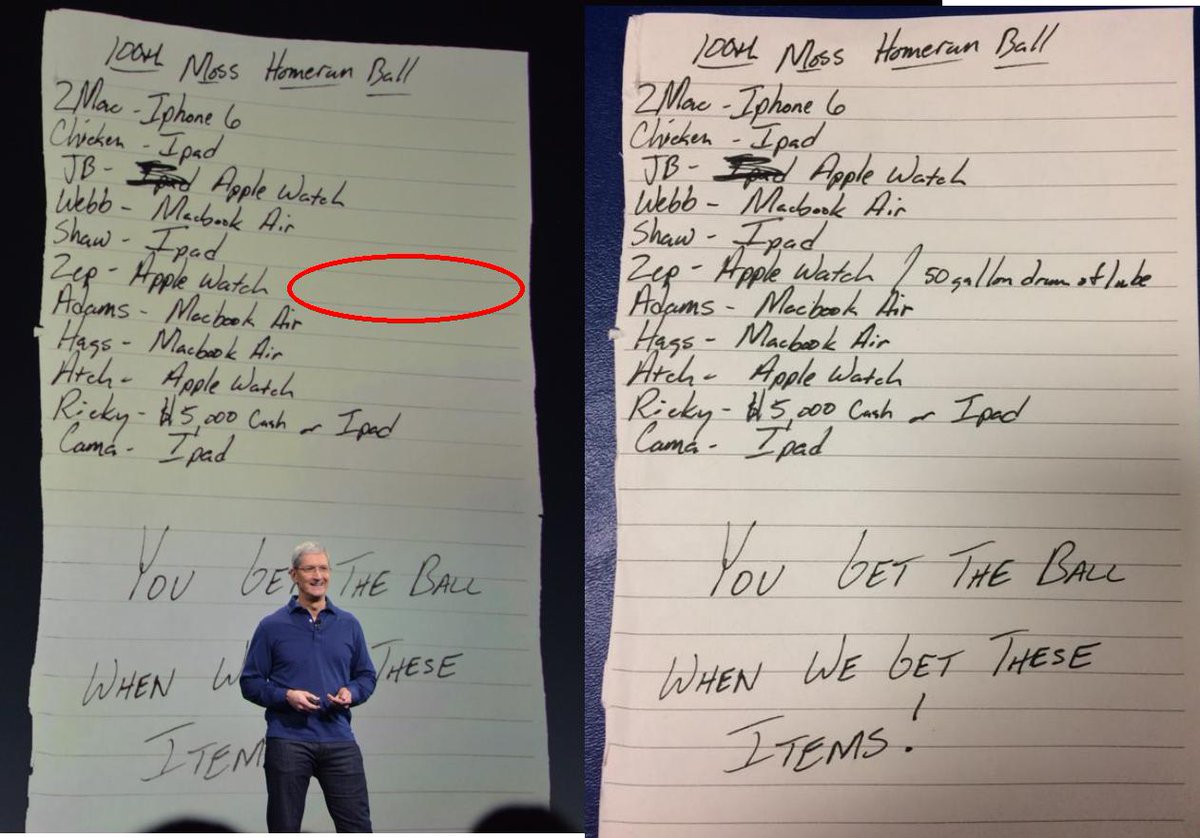 100th Moss Homerun Ball
2Mac - Iphone 6
Chicken - Ipad
JB - Ipad Apple Watch
Webb - Macbook Air
Shaw - Ipad
Zep - Apple Watch
Adams - Macbook Air
Hags - Macbook Air
Atch - Apple Watch
Ricky - $5,000 Cash or Ipad
Cama - Ipad
YOU GET THE BALL
WHEN W THESE
ITEM
100th Moss Homerun Ball
2Mac - Iphone 6
Chicken - Ipad
JB - Ipad Apple Watch
Webb - Macbook Air
Shaw - Ipad
Zep - Apple Watch / 50 gallon drum of lube
Adams - Macbook Air
Hags - Macbook Air
Atch - Apple Watch
Ricky - $5,000 Cash or Ipad
Cama - Ipad
YOU GET THE BALL
WHEN WE GET THESE
ITEMS!